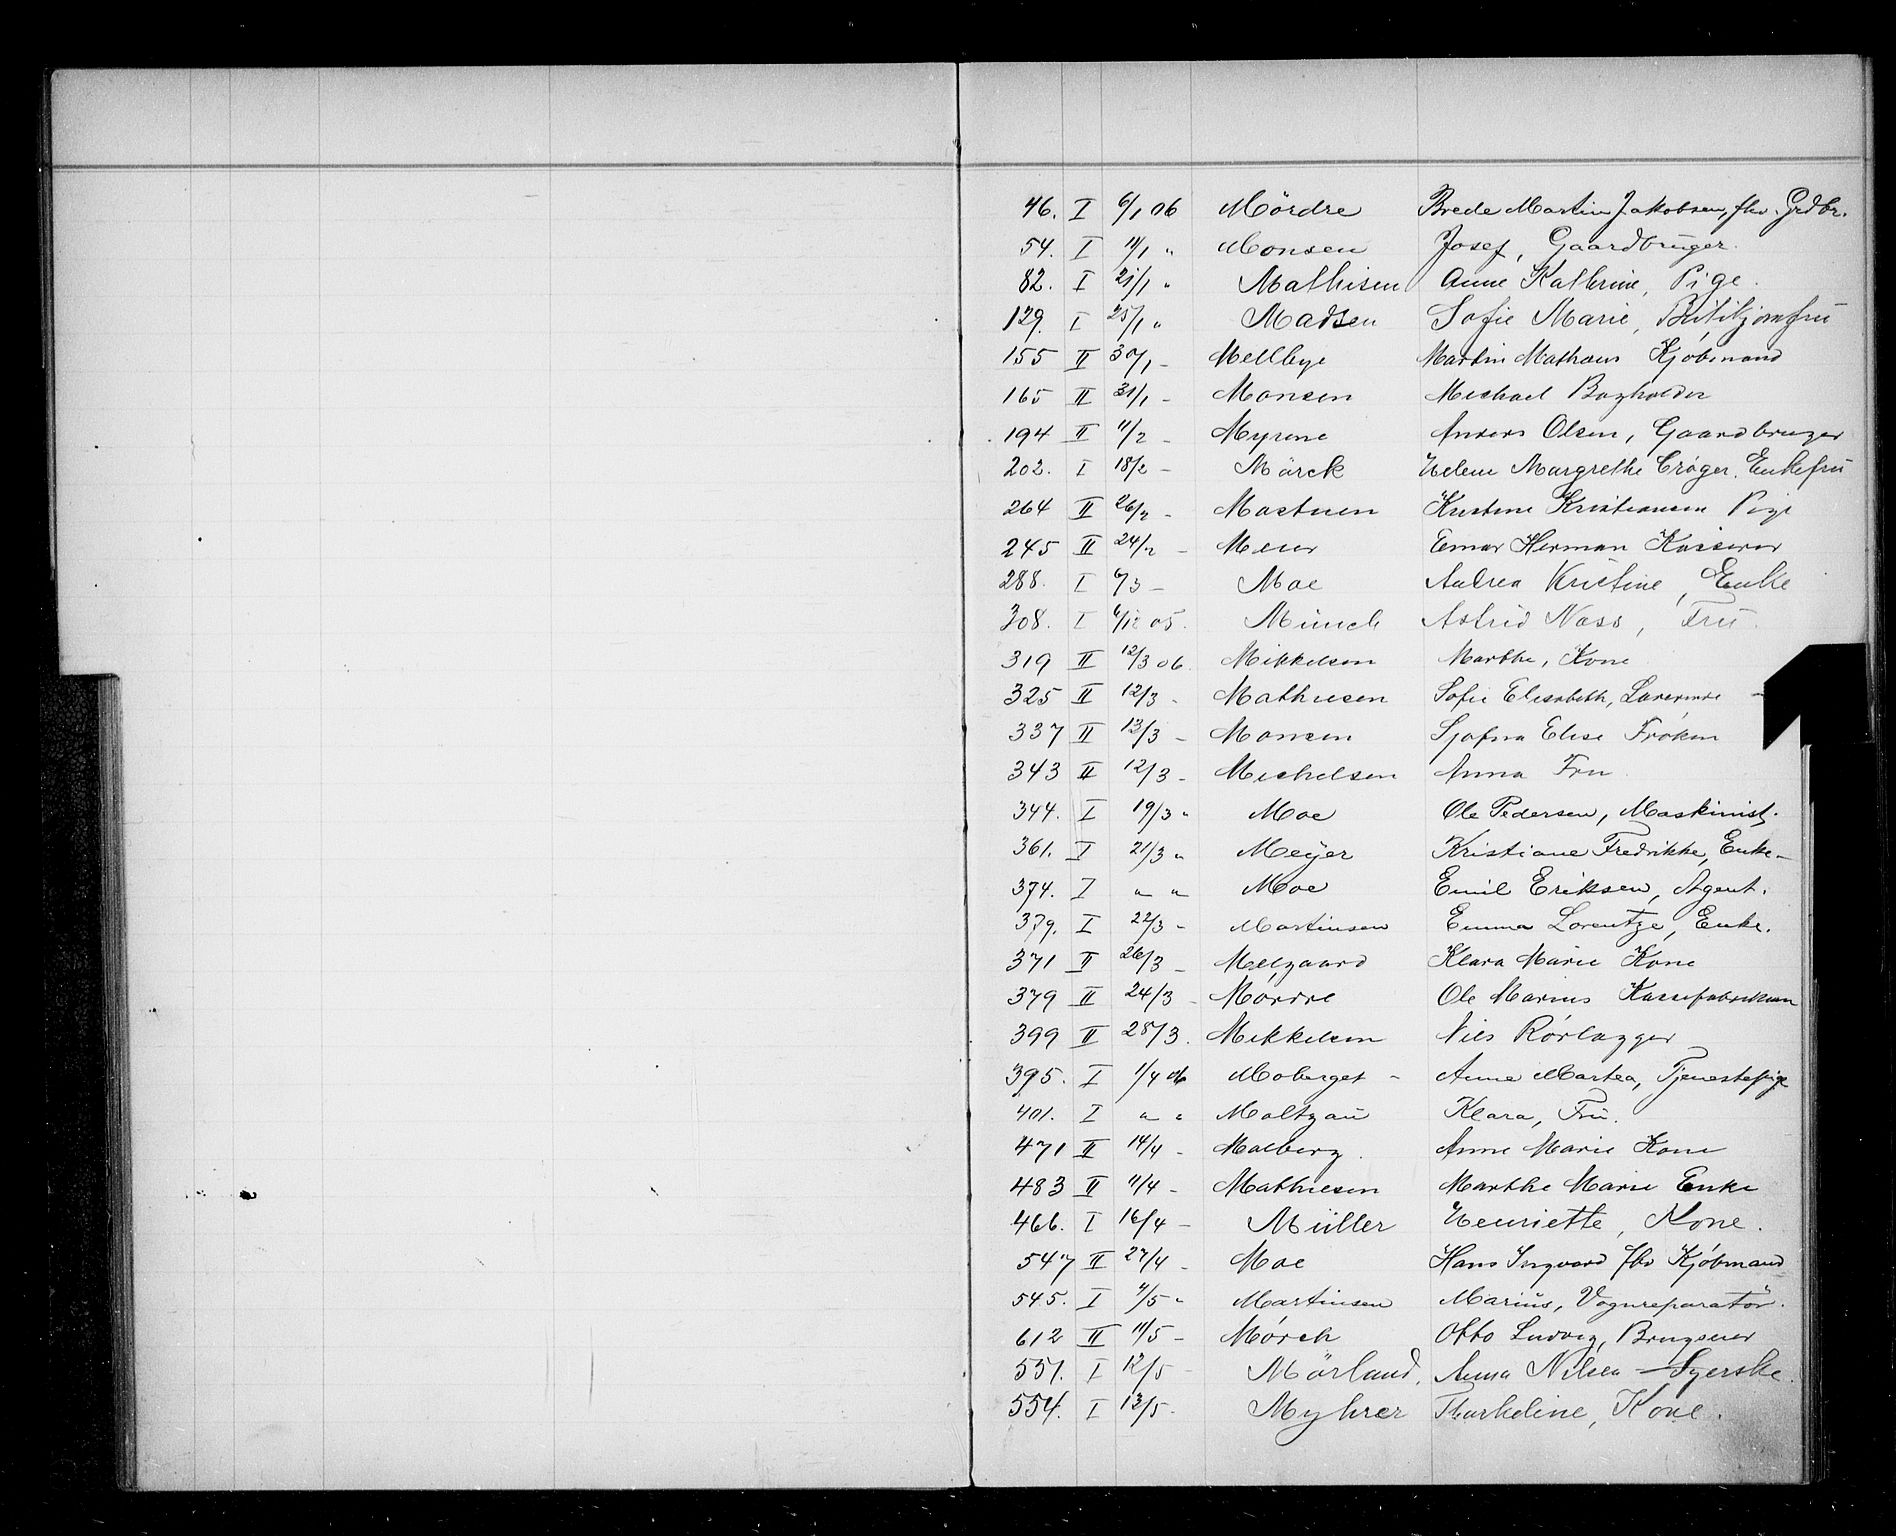 46. I 6/1 06 Mördre Brede Martin Jakobsen, fhv. Grdbr.
54. I 11/1 " Monsen Josef, Gaardbruger.
82. I 21/1 " Mathisen Anne Kathrine, Pige.
129. I 25/1 " Madsen Sofie Marie,
155 II 30/1 - Mellbye Martin Mathæus Kjøbmand
165 II 31/1 - Monsen Michael Bogholder
194 II 11/2 - Myrene Anders Olsen, Gaardbruger
202. I 18/2 - Mörck Helene Margrethe Crøger. Enkefru
264 II 26/2 - Mostuen Kristine Kristiansen Pige
245 II 24/2 - Meier Einar Herman Kasserer
288. I 6/3 - Moe Andrea Kristine, Enke
308. I 6/12 05. Münch Astrid Næss, Fru.
319 II 12/3 06. Mikkelsen Marthe, Kone
325 II 12/3 - Mathiesen Sofie Elisabeth, Lærerinde -
337 II 13/3 - Monsen Sjøfna Elise Frøken
343 II 12/3 - Michelsen Anna Fru
344. I 19/3 " Moe Ole Pedersen, Maskinist.
361. I 21/3 " Meÿer Kristiane Fredrikke, Enke -
374. I " " Moe Emil Eriksen, Agent.
379. I 22/3 - Martinsen Emma Lorentze, Enke.
371 II 26/3 - Melgaard Klara Marie Kone
379 II 24/3 - Mørdre Ole Marius Kassefabrikant
399 II 28/3. Mikkelsen Nils Rørlægger
395. I 1/4 06 Moberget - Anne Martea, Tjenestepige
401. I " " Moltzau Klara, Fru.
471 II 14/4 - Malberg. Anne Marie Kone
483 II 11/4 - Mathiesen Marthe Marie Enke
466. I 16/4 - Müller Henriette, Kone.
547 II 27/4 - Moe Hans Ingvard fhv Kjøbmand
545. I 4/5 " Martinsen Marius, Vognreparatör.
612 II 11/5 - Mørch Otto Ludvig, Brugseier
551. I 12/5 - Mörland, Anna Nilsen - Syerske.
554. I 13/5. Myhrer Thorkeline, Kone.